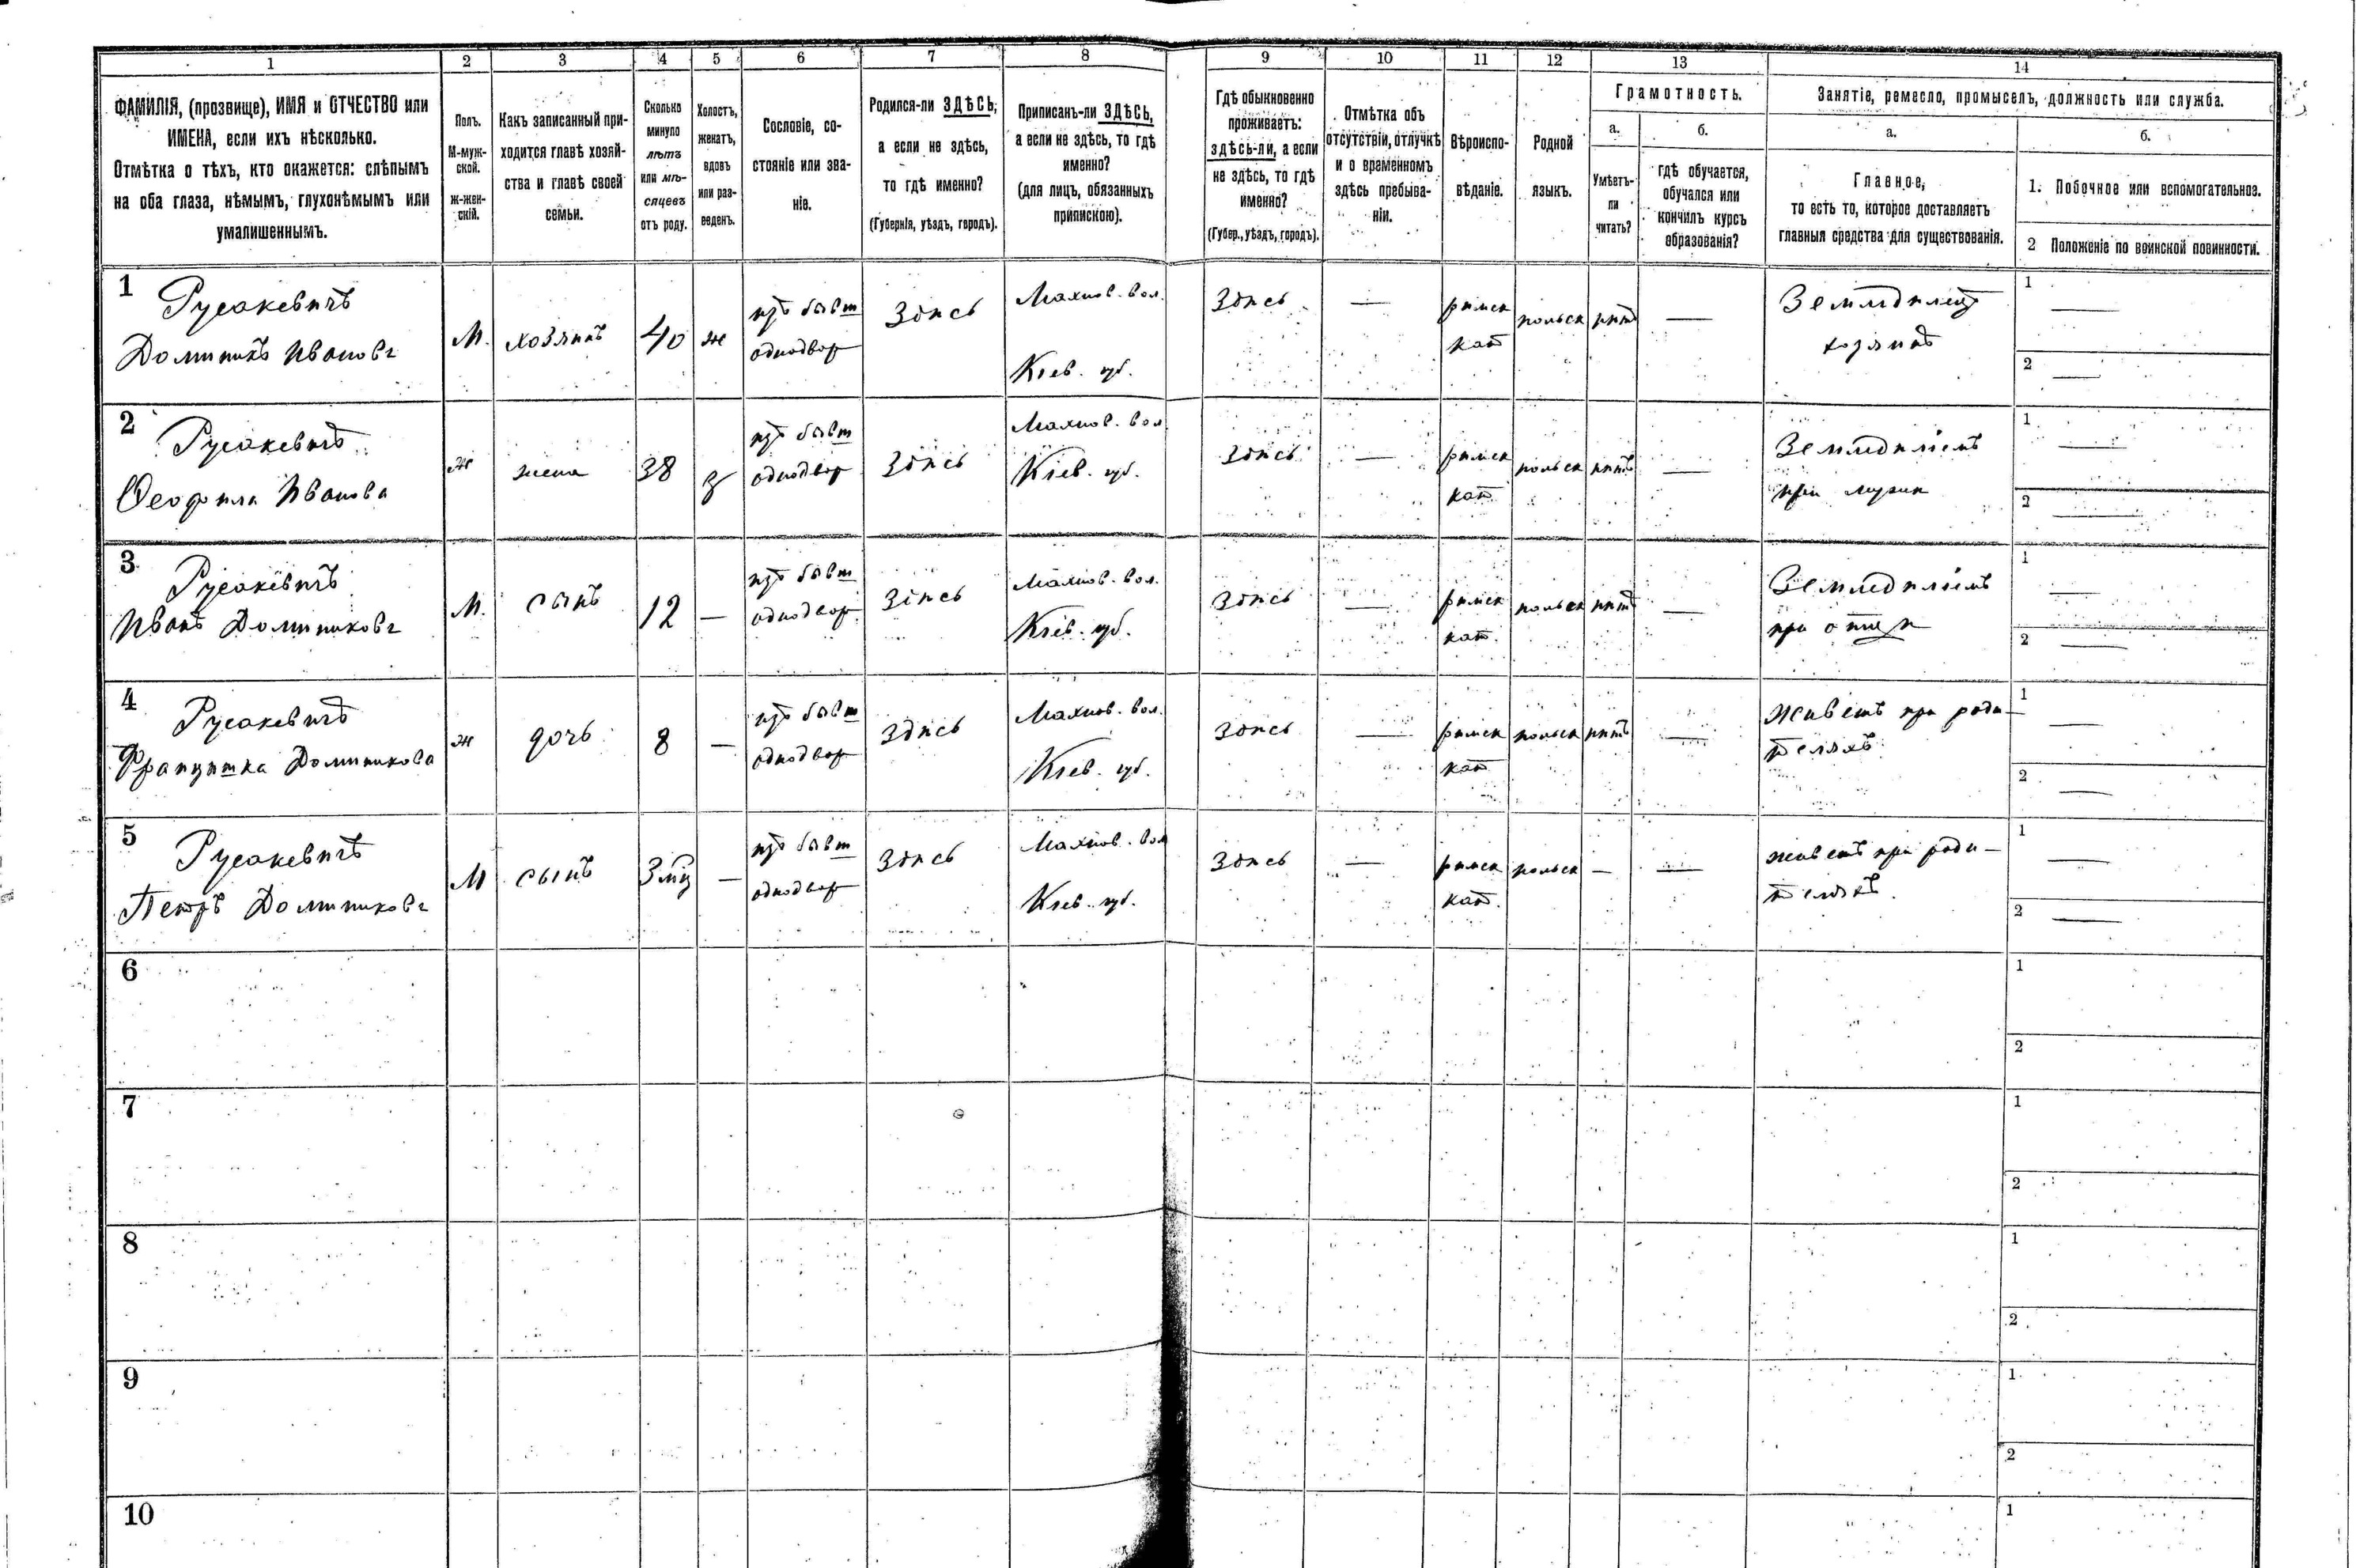 1 2 3 4 5 6 7 8 9 10 11 12 13 14
ФАМИЛІЯ, (прозвище), ИМЯ и ОТЧЕСТВО или
ИМЕНА, если ихъ нѣсколько.
Отмѣтка о тѣхъ, кто окажется: слѣпымъ
на оба глаза, нѣмымъ, глухонѣмымъ или
умалишеннымъ.
Полъ.
М-муж-
ской.
ж-жен-
скій.
Какъ записанный при-
ходится главѣ хозяй-
ства и главѣ своей
семьи.
Сколько
минуло
лѣтъ
или мѣ-
сяцевъ
отъ роду.
Холостъ,
женатъ,
вдовъ
или раз-
веденъ.
Сословіе, со-
стояніе или зва-
ніе.
Родился-ли ЗДѢСЬ,
а если не здѣсь,
то гдѣ именно?
(Губернія, уѣздъ, городъ).
Приписанъ-ли ЗДѢСЬ,
а если не здѣсь, то гдѣ
именно?
(для лицъ, обязанныхъ
припискою).
Гдѣ обыкновенно
проживаетъ:
здѣсь-ли, а если
не здѣсь, то гдѣ
именно?
(Губер., уѣздъ, городъ).
Отмѣтка объ
отсутствіи, отлучкѣ
и о временномъ
здѣсь пребыва-
ніи.
Вѣроиспо-
вѣданіе.
Родной
языкъ.
Грамотность.
а.
Умѣетъ-
ли
читать?
б.
гдѣ обучается,
обучался или
кончилъ курсъ
образованія?
Занятіе, ремесло, промыселъ, должность или служба.
а.
Главное,
то есть то, которое доставляетъ
главныя средства для существованія.
б.
1. Побочное или вспомогательное.
2 Положеніе по воинской повинности.
1 Русакевичъ
Доминикъ Ивановъ
М. хозяинъ 40 ж
изъ бывш
однодвор
Здѣсь
Махнов. вол.
Кіев. губ.
Здѣсь —
римск
кат
польск нѣтъ —
Земледѣлец
хозяинъ
1 —
2 —
2 Русакевичъ
Ѳеофила Иванова
ж жена 38 з
изъ бывш
однодвор
Здѣсь
Махнов. вол
Кіев. губ.
Здѣсь —
римск
кат
польск нѣтъ —
Земледѣліемъ
при мужѣ
1 —
2 —
3 Русакевичъ
Иванъ Доминиковъ
М. сынъ 12 —
изъ бывш
однодвор.
Здѣсь
Махнов. вол.
Кіев. губ.
Здѣсь —
римск
кат.
польск нѣтъ —
Земледѣліемъ
при отцѣ
1 —
2 —
4 Русакевичъ
Францишка Доминикова
ж дочь 8 —
изъ бывш
однодвор
Здѣсь
Махнов. вол.
Кіев. губ.
Здѣсь —
римск
кат
польск нѣтъ —
Живетъ при роди-
теляхъ.
1 —
2 —
5 Русакевичъ
Петръ Доминиковъ
М сынъ 3 мц —
изъ бывш
однодвор
Здѣсь
Махнов. вол
Кіев. губ.
Здѣсь —
римск
кат.
польск — —
живетъ при роди-
теляхъ.
1 —
2 —
6
1
2
7
1
2
8
1
2
9
1
2
10
1